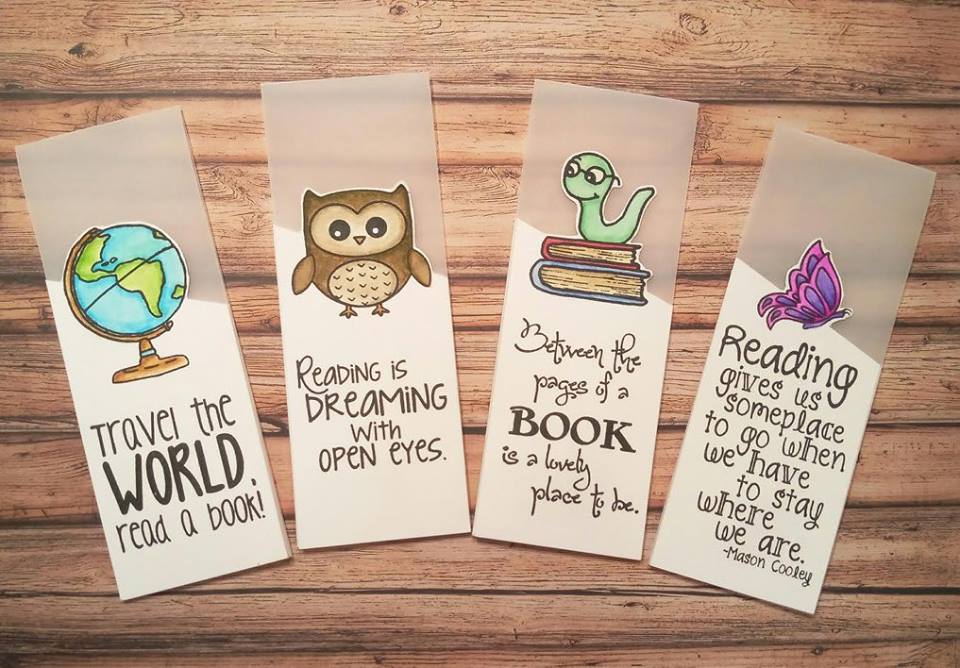 Travel the
WORLD,
read a book!
READING IS
DREAMING
With
OPEN EYES.
Between the
pages of a
BOOK
is a lovely
place to be.
Reading
gives us
someplace
to go when
we have
to stay
where
we are.
-Mason Cooley